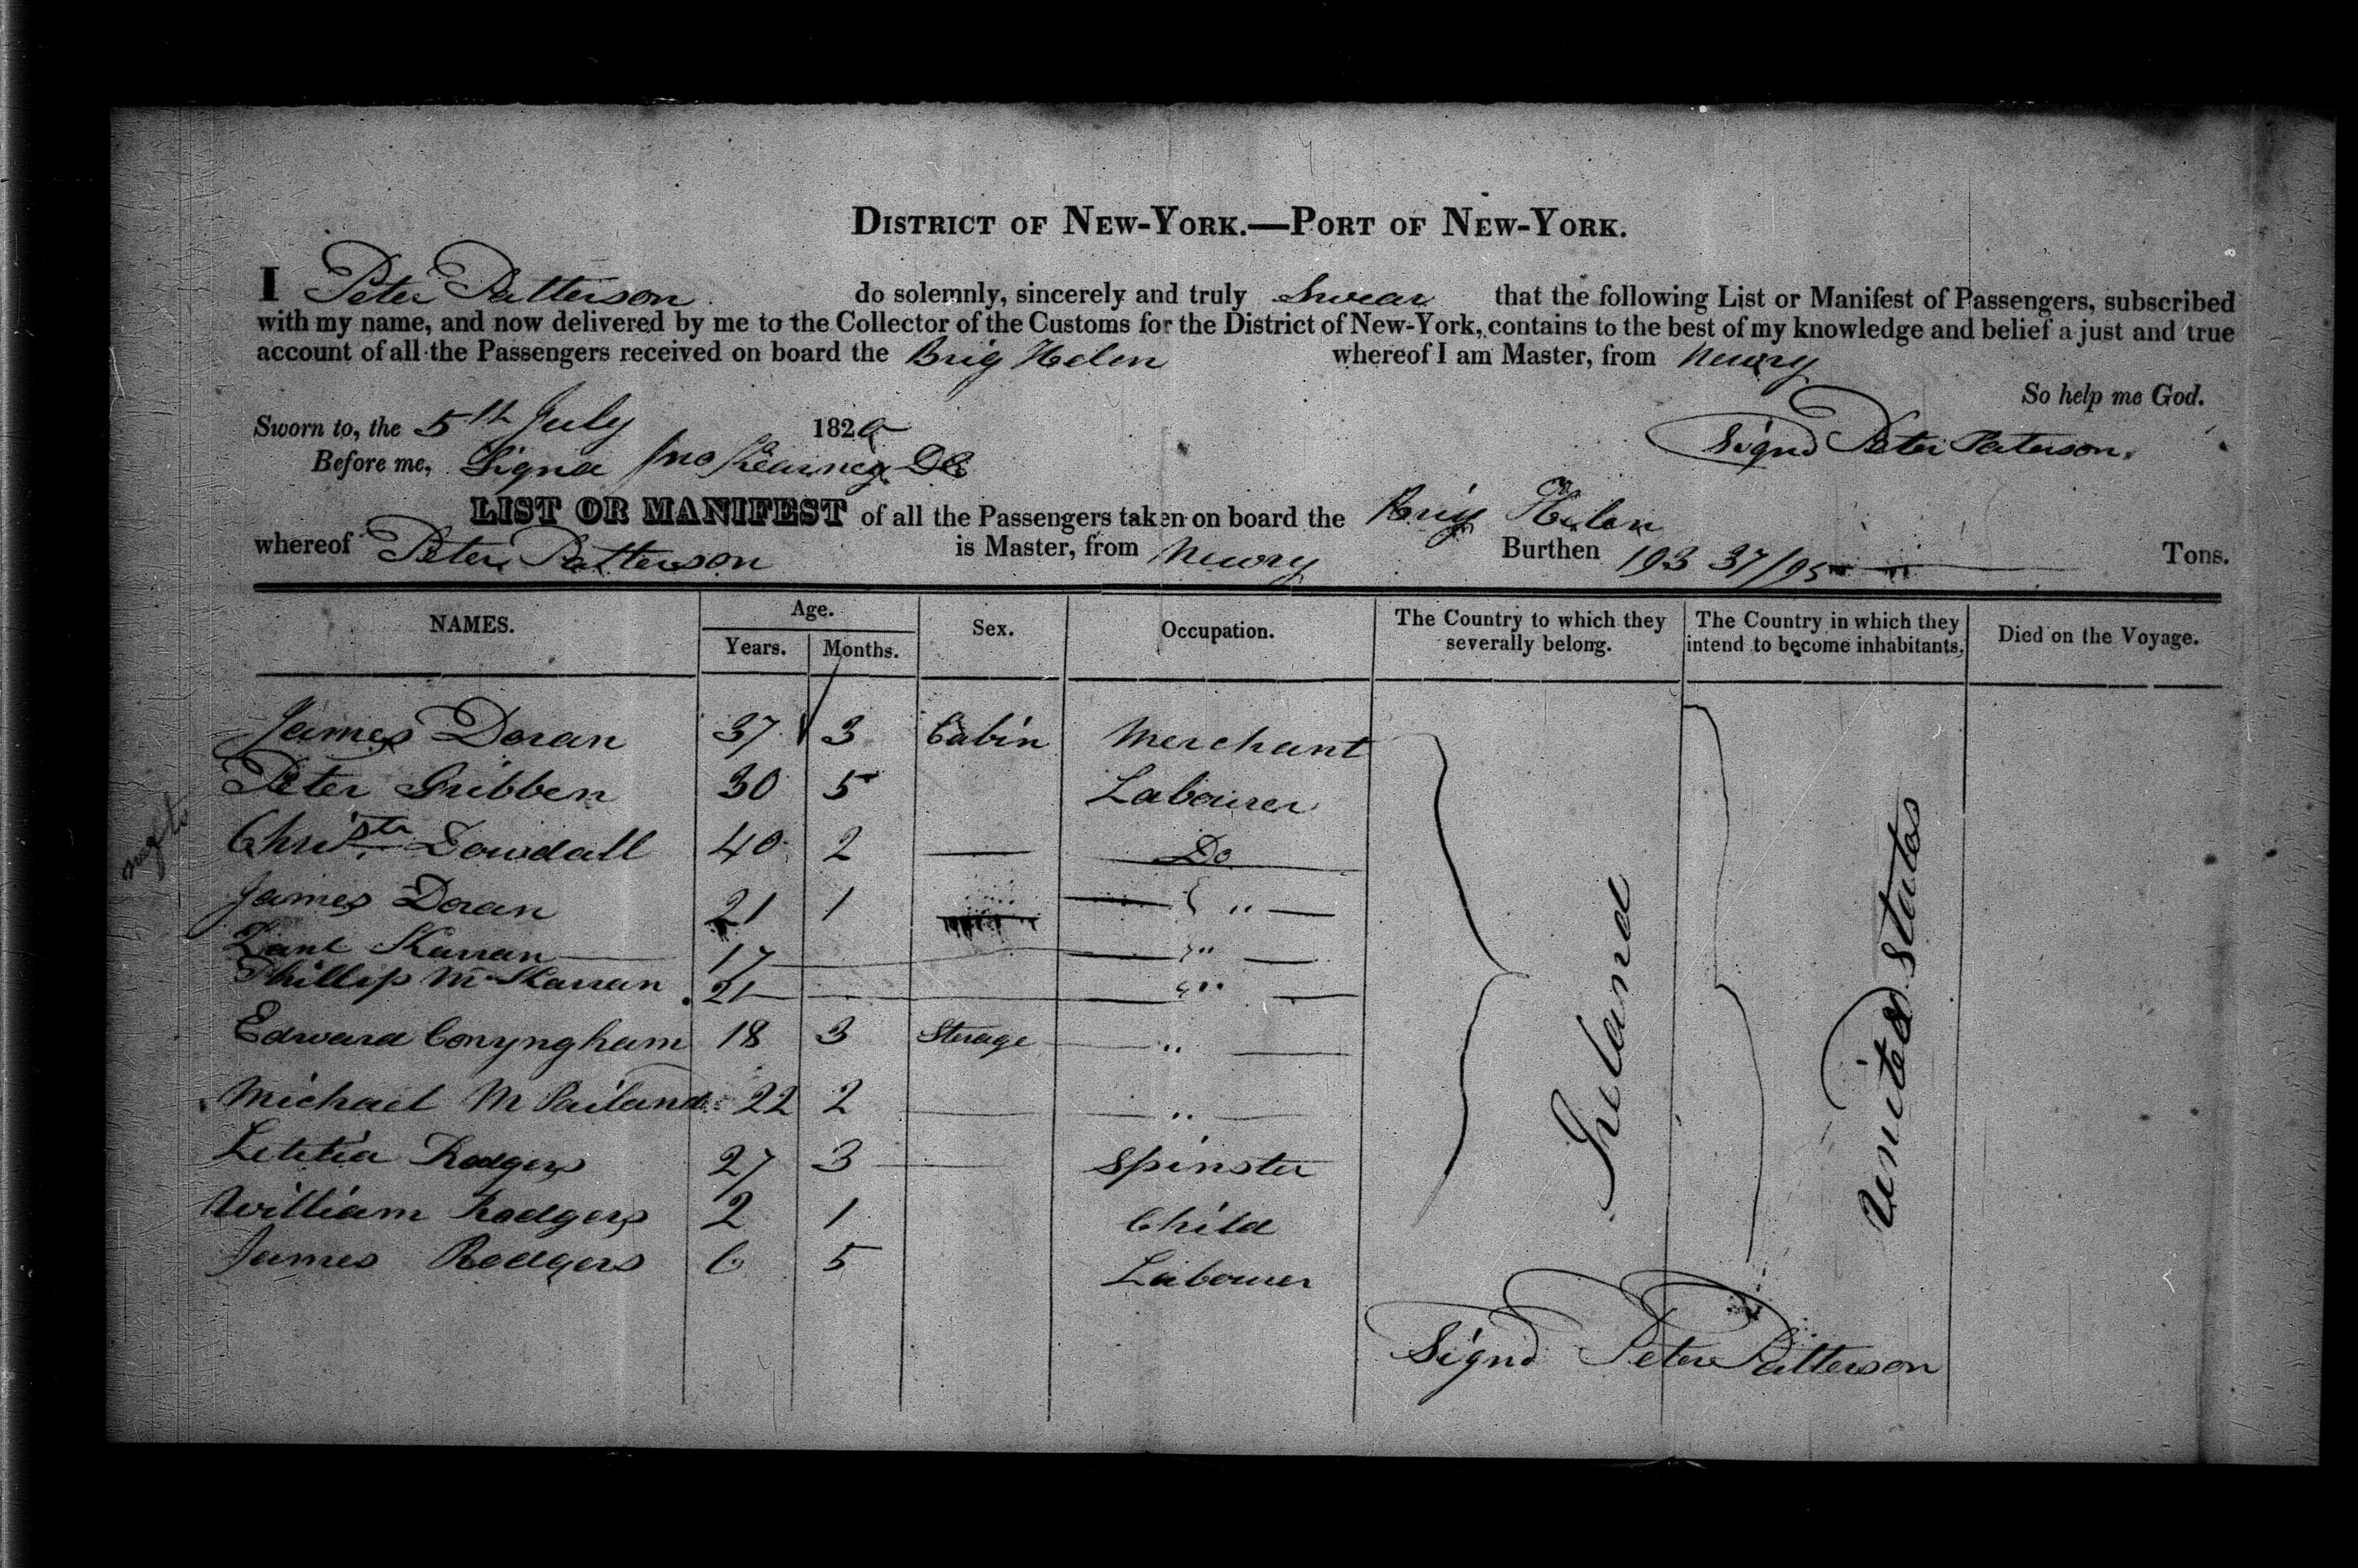 DISTRICT OF NEW-YORK.—PORT OF NEW-YORK.
I Peter Patterson do solemnly, sincerely and truly Swear that the following List or Manifest of Passengers, subscribed
with my name, and now delivered by me to the Collector of the Customs for the District of New-York, contains to the best of my knowledge and belief a just and true
account of all the Passengers received on board the Brig Helen whereof I am Master, from Newry
So help me God.
Sworn to, the 5th July 182
Signd Peter Paterson.
Before me, Signd Jno Kearney DC
LIST OR MANIFEST of all the Passengers taken on board the Brig Helen
whereof Peter Patterson is Master, from Newry Burthen 193 37/95 Tons.
NAMES. Age. Years. Months. Sex. Occupation. The Country to which they severally belong. The Country in which they intend to become inhabitants. Died on the Voyage.
James Doran 37 3 Cabin Merchant
Peter Gribben 30 5 Labourer
Christr Dowdall 40 2 — Do
James Doran 21 1 — " —
Karran 17 — " —
Phillip McKarran 21 — " —
Edward Conyngham 18 3 Sterage — " —
Michael 22 2 — " —
Letitia Rodgers 27 3 — Spinster
William Rodgers 2 1 Child
James Rodgers 6 5 Labourer
Ireland
United States
Signd Peter Patterson